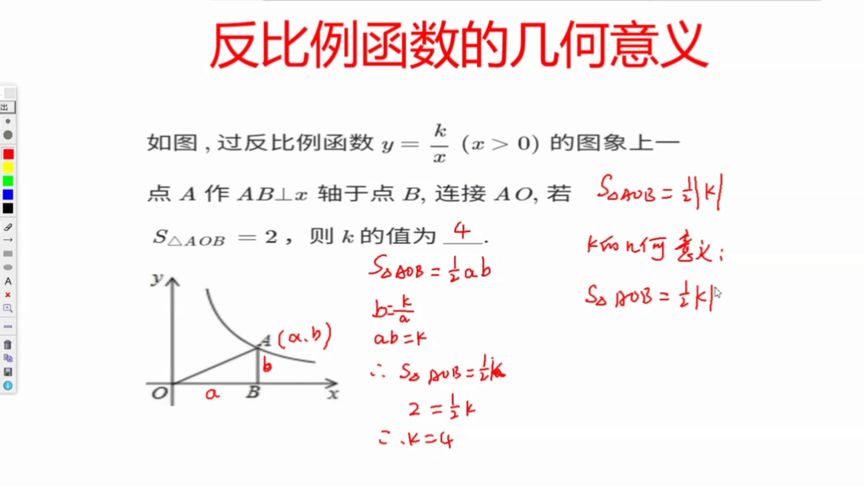 反比例函数的几何意义
如图，过反比例函数 y = k/x (x > 0) 的图象上一
点 A 作 AB⊥x 轴于点 B, 连接 AO, 若
S△AOB = 2，则 k 的值为 4.
S△AOB = 1/2|k|
k的几何意义:
S△AOB = 1/2k|
S△AOB = 1/2ab
b=k/a
ab=k
∴ S△AOB = 1/2k
2 = 1/2k
∴ k=4
y
A (a.b)
b
O a B x
出
A